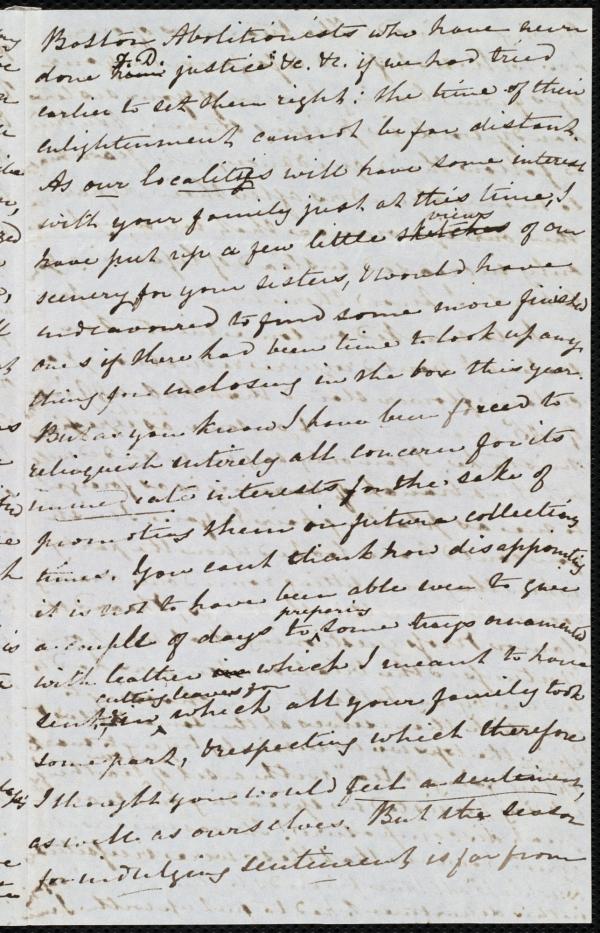 Boston Abolitionists who have never
done D.D. justice &c. &c. if we had tried
earlier to set them right: the time of their
enlightenment cannot be far distant.
As our localities will have some interest
with your family just at this time, I
have put up a few little sketches views of our
scenery for your sisters, & would have
endeavoured to find some more finished
ones if there had been time to look up any
thing for inclosing in the box this year.
But as you know I have been forced to
relinquish entirely all concern for its
immediate interests for the sake of
promoting them in future collecting
times. You cant think how disappointing
it is not to have been able even to give
a couple of days to preparing some trays ornamented
with leather in which I meant to have
sent, cutting leaves for which all your family took
some part, & respecting which therefore
I thought you would feel a sentiment,
as well as ourselves. But the season
for indulging sentiment is far from